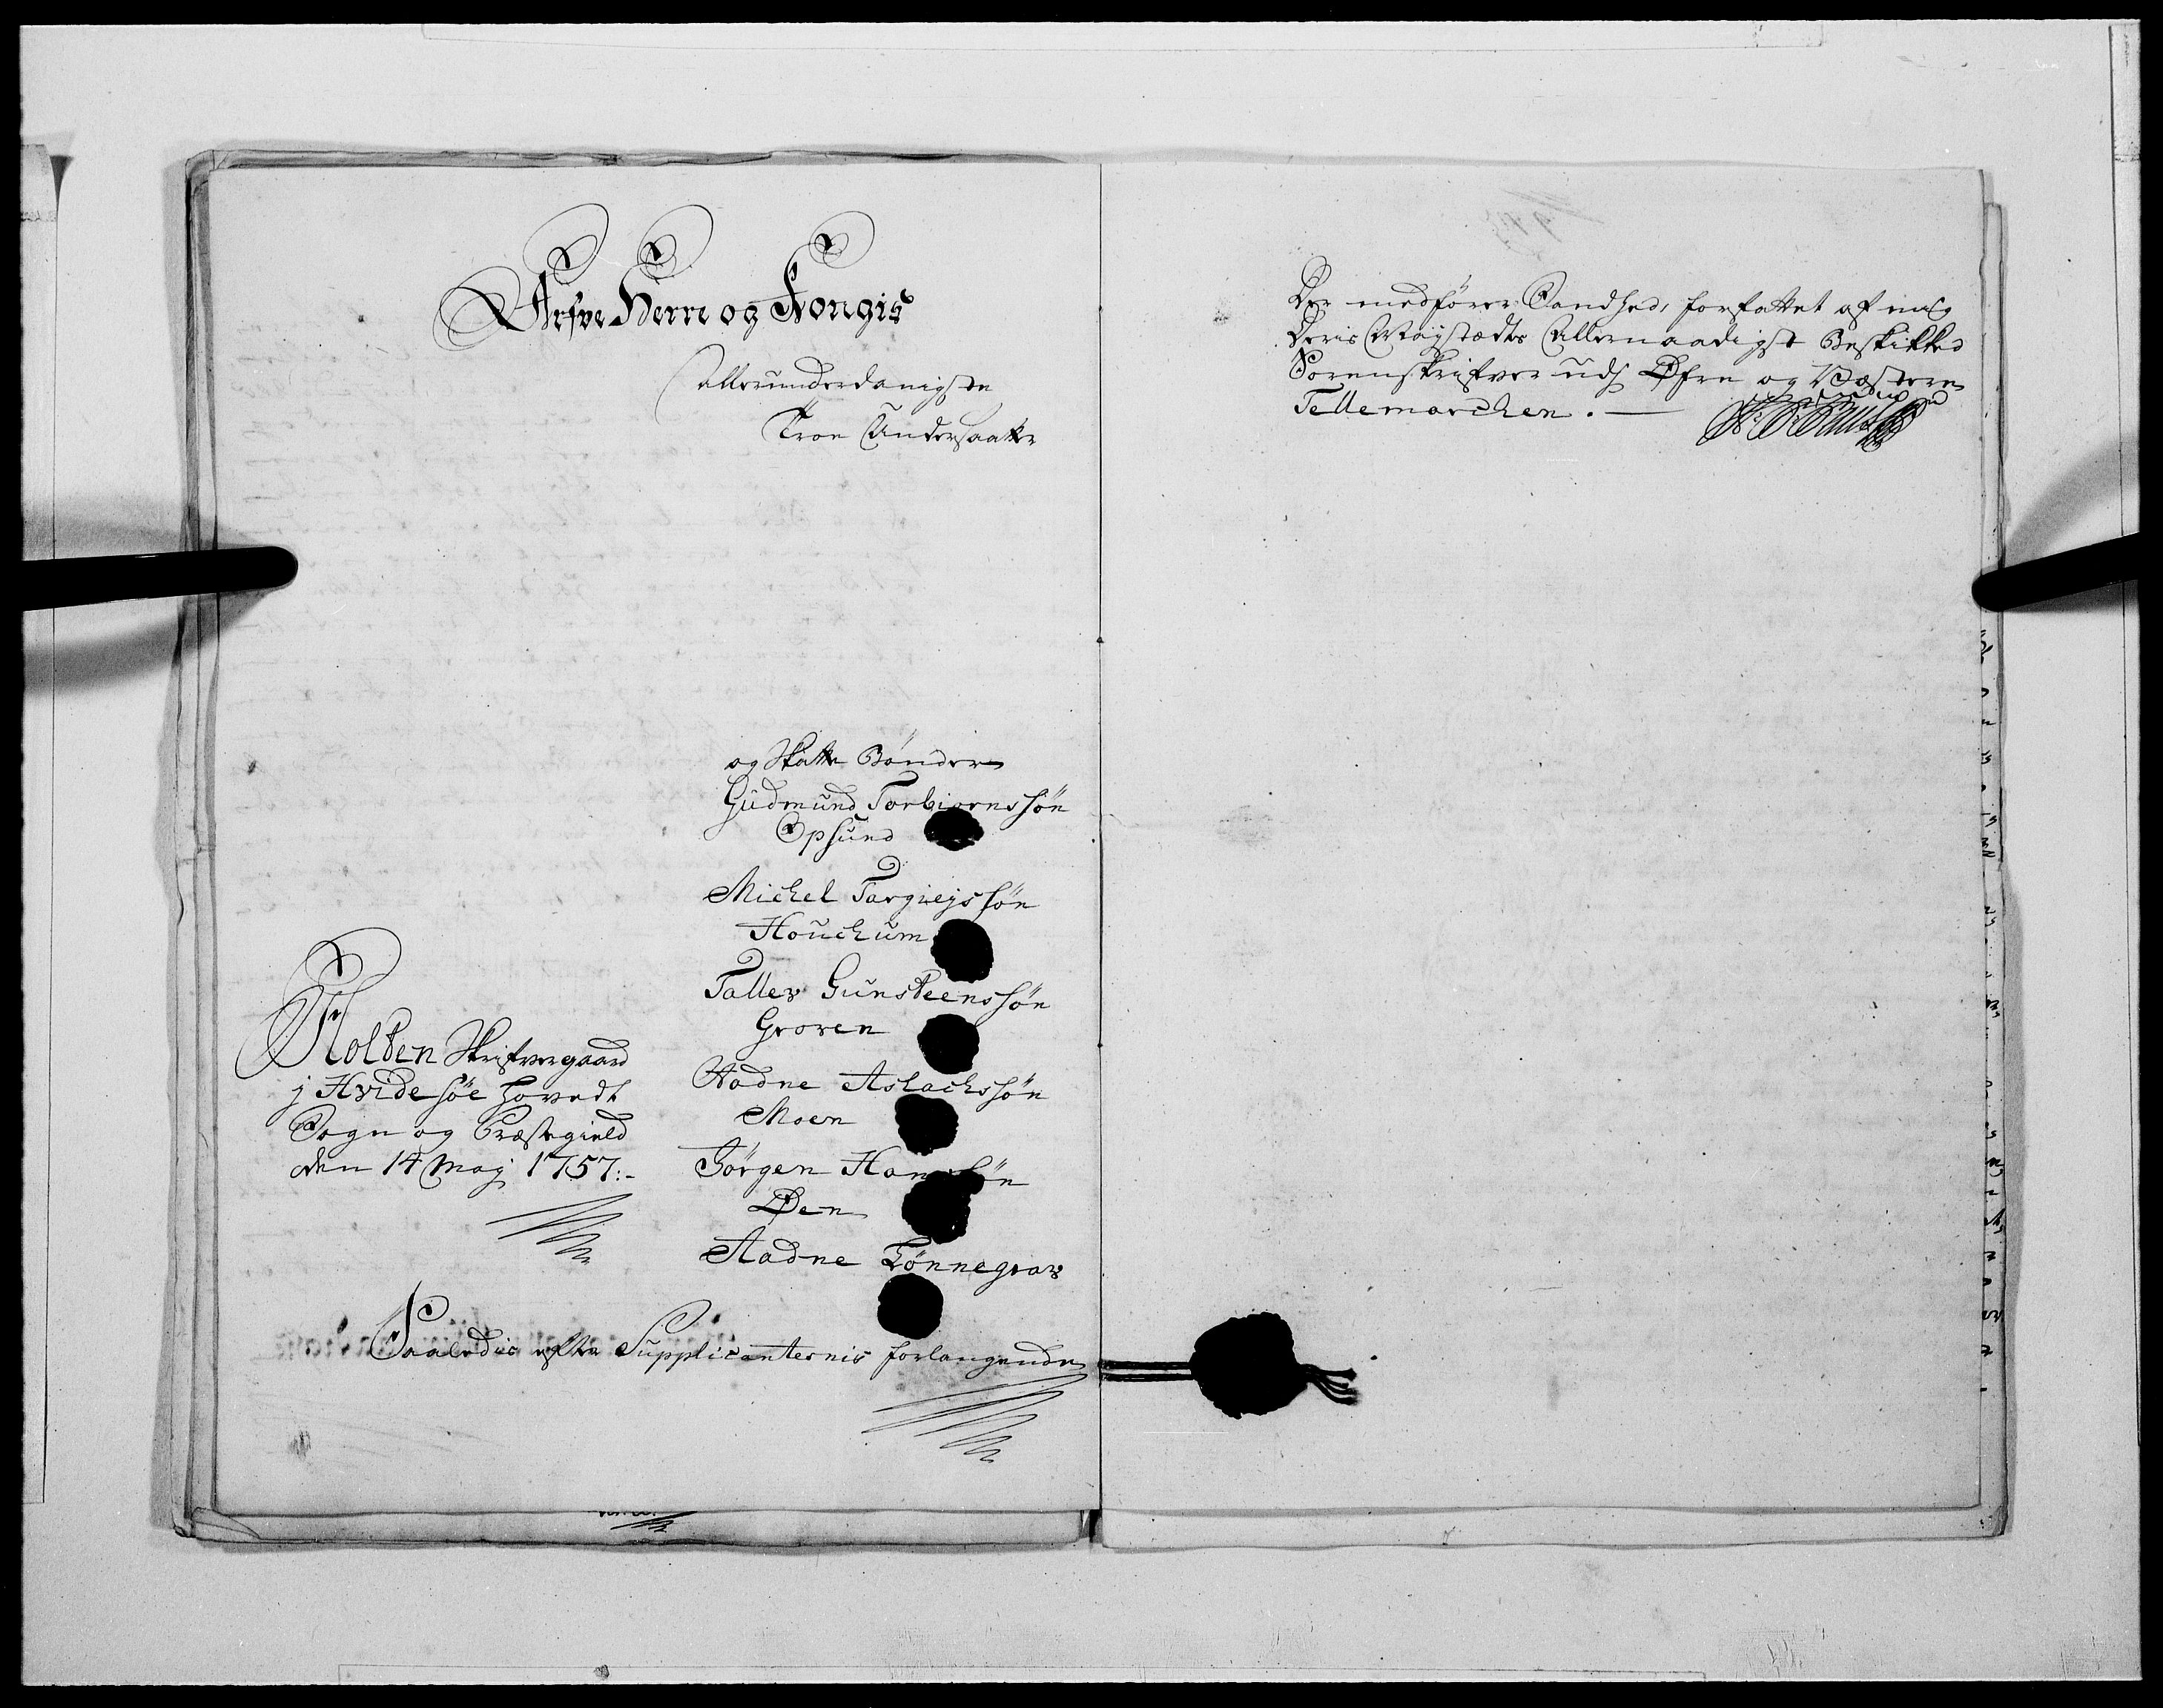 Arfve Herre og Kongis
Allerunderdanigste
Troe Undersaatter
og Skatte Bønder
Gudmund Torbiørnssøn
Opsund
Michel Targiejssøn
Houchum
Taller Gunsteenssøn
Groven
Aadne Aslachssøn
Moen
Jørgen Hanssøn
Øen
Aadne Tønnegrav
Holten Skrifvergaard
j Hvidesøe Hovedt
Sogn og Præstegield
den 14 Maj 1757:-
Saaledis efter Supplicanternis forlangende
Der medfører Sandhed, forfattet af mig
Deris Mayestædts Allernaadigst Beskikked
Sorenskrifver udj Øfre og Væstere
Tellemarchen. —